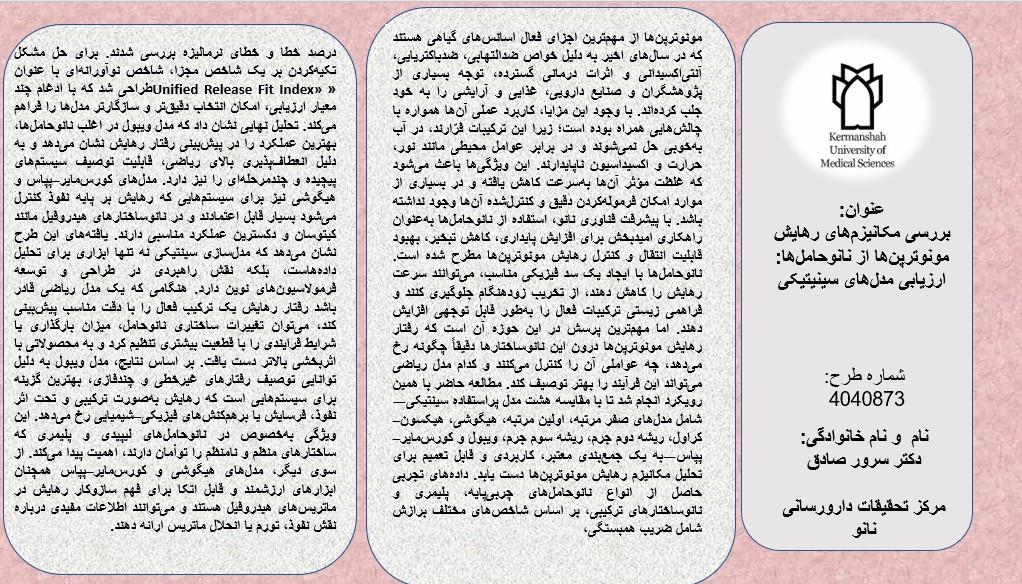 Kermanshah
University of
Medical Sciences
عنوان:
بررسی مکانیزم‌های رهایش
مونوترپن‌ها از نانوحامل‌ها:
ارزیابی مدل‌های سینیتیکی
شماره طرح:
4040873
نام و نام خانوادگی:
دکتر سرور صادق
مرکز تحقیقات دارورسانی
نانو
مونوترپن‌ها از مهم‌ترین اجزای فعال اسانس‌های گیاهی هستند
که در سال‌های اخیر به دلیل خواص ضدالتهابی، ضدباکتریایی،
آنتی‌اکسیدانی و اثرات درمانی گسترده، توجه بسیاری از
پژوهشگران و صنایع دارویی، غذایی و آرایشی را به خود
جلب کرده‌اند. با وجود این مزایا، کاربرد عملی آن‌ها همواره با
چالش‌هایی همراه بوده است؛ زیرا این ترکیبات فرّارند، در آب
به‌خوبی حل نمی‌شوند و در برابر عوامل محیطی مانند نور،
حرارت و اکسیداسیون ناپایدارند. این ویژگی‌ها باعث می‌شود
که غلظت مؤثر آن‌ها به‌سرعت کاهش یافته و در بسیاری از
موارد امکان فرموله‌کردن دقیق و کنترل‌شده آن‌ها وجود نداشته
باشد. با پیشرفت فناوری نانو، استفاده از نانوحامل‌ها به‌عنوان
راهکاری امیدبخش برای افزایش پایداری، کاهش تبخیر، بهبود
قابلیت انتقال و کنترل رهایش مونوترپن‌ها مطرح شده است.
نانوحامل‌ها با ایجاد یک سد فیزیکی مناسب، می‌توانند سرعت
رهایش را کاهش دهند، از تخریب زودهنگام جلوگیری کنند و
فراهمی زیستی ترکیبات فعال را به‌طور قابل توجهی افزایش
دهند. اما مهم‌ترین پرسش در این حوزه آن است که رفتار
رهایش مونوترپن‌ها درون این نانوساختارها دقیقاً چگونه رخ
می‌دهد، چه عواملی آن را کنترل می‌کنند و کدام مدل ریاضی
می‌تواند این فرآیند را بهتر توصیف کند. مطالعه حاضر با همین
رویکرد انجام شد تا با مقایسه هشت مدل پراستفاده سینتیکی—
شامل مدل‌های صفر مرتبه، اولین مرتبه، هیگوشی، هیکسون–
کراول، ریشه دوم جرم، ریشه سوم جرم، ویبول و کورس‌مایر–
پپاس—به یک جمع‌بندی معتبر، کاربردی و قابل تعمیم برای
تحلیل مکانیزم رهایش مونوترپن‌ها دست یابد. داده‌های تجربی
حاصل از انواع نانوحامل‌های چربی‌پایه، پلیمری و
نانوساختارهای ترکیبی، بر اساس شاخص‌های مختلف برازش
شامل ضریب همبستگی،
درصد خطا و خطای نرمالیزه بررسی شدند. برای حل مشکل
تکیه‌کردن بر یک شاخص مجزا، شاخص نوآورانه‌ای با عنوان
« «Unified Release Fit Indexطراحی شد که با ادغام چند
معیار ارزیابی، امکان انتخاب دقیق‌تر و سازگارتر مدل‌ها را فراهم
می‌کند. تحلیل نهایی نشان داد که مدل ویبول در اغلب نانوحامل‌ها،
بهترین عملکرد را در پیش‌بینی رفتار رهایش نشان می‌دهد و به
دلیل انعطاف‌پذیری بالای ریاضی، قابلیت توصیف سیستم‌های
پیچیده و چندمرحله‌ای را نیز دارد. مدل‌های کورس‌مایر–پپاس و
هیگوشی نیز برای سیستم‌هایی که رهایش بر پایه نفوذ کنترل
می‌شود بسیار قابل اعتمادند و در نانوساختارهای هیدروفیل مانند
کیتوسان و دکسترین عملکرد مناسبی دارند. یافته‌های این طرح
نشان می‌دهند که مدل‌سازی سینتیکی نه تنها ابزاری برای تحلیل
داده‌هاست، بلکه نقش راهبردی در طراحی و توسعه
فرمولاسیون‌های نوین دارد. هنگامی که یک مدل ریاضی قادر
باشد رفتار رهایش یک ترکیب فعال را با دقت مناسب پیش‌بینی
کند، می‌توان تغییرات ساختاری نانوحامل، میزان بارگذاری یا
شرایط فرایندی را با قطعیت بیشتری تنظیم کرد و به محصولاتی با
اثربخشی بالاتر دست یافت. بر اساس نتایج، مدل ویبول به دلیل
توانایی توصیف رفتارهای غیرخطی و چندفازی، بهترین گزینه
برای سیستم‌هایی است که رهایش به‌صورت ترکیبی و تحت اثر
نفوذ، فرسایش یا برهم‌کنش‌های فیزیکی–شیمیایی رخ می‌دهد. این
ویژگی به‌خصوص در نانوحامل‌های لیپیدی و پلیمری که
ساختارهای منظم و نامنظم را توأمان دارند، اهمیت پیدا می‌کند. از
سوی دیگر، مدل‌های هیگوشی و کورس‌مایر–پپاس همچنان
ابزارهای ارزشمند و قابل اتکا برای فهم سازوکار رهایش در
ماتریس‌های هیدروفیل هستند و می‌توانند اطلاعات مفیدی درباره
نقش نفوذ، تورم یا انحلال ماتریس ارائه دهند.